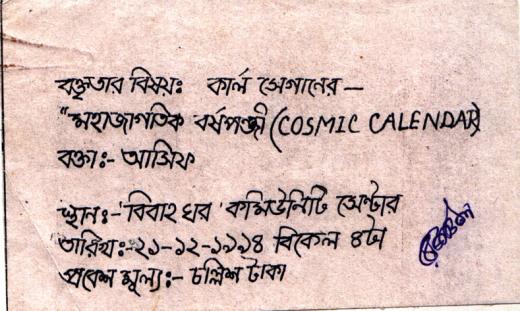 বক্তৃতার বিষয়ঃ কার্ল সেগানের —
"মহাজাগতিক বর্ষপঞ্জী (COSMIC CALENDAR)
বক্তাঃ- আসিফ
স্থানঃ- 'বিবাহ ঘর' কমিউনিটি সেন্টার
তারিখঃ- ২১-১২-১৯৯৪ বিকেল ৪টা
প্রবেশ মূল্যঃ- চল্লিশ টাকা